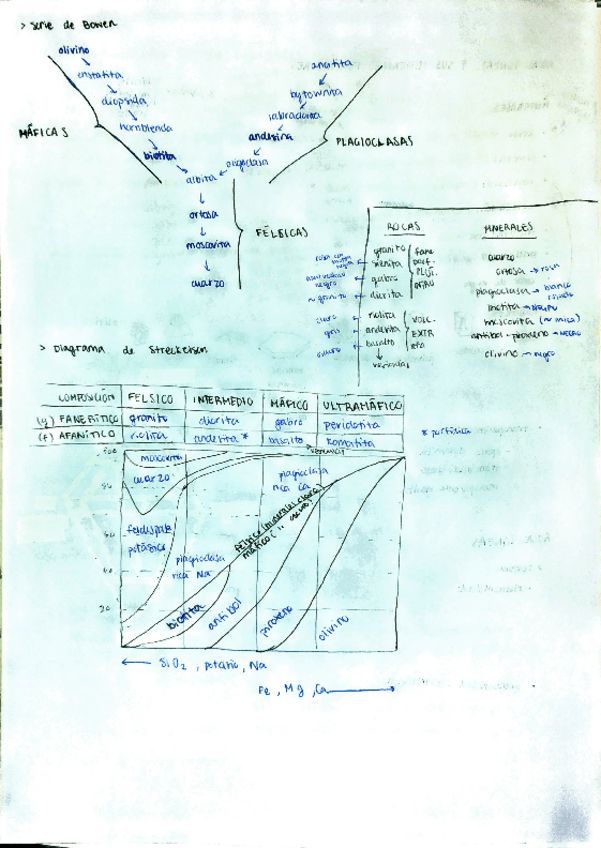 > Serie de Bowen
olivino
enstatita
diopsida
hornblenda
biotita
MÁFICAS
anortita
bytownita
labradorita
andesina
oligoclasa
PLAGIOCLASAS
albita
ortosa
moscovita
cuarzo
FÉLSICAS
ROCAS
granito
sienita
gabro
diorita
riolita
andesita
basalto
fane
PLUT.
VOLC.
EXTR
negro
~ granito
claro
gris
oscuro
MINERALES
cuarzo
ortosa → rosa
plagioclasa → blanco
moscovita (~ mica)
anfibol - piroxeno → NEGRO
olivino → negro
> Diagrama de Streckeisen
COMPOSICIÓN FELSICO INTERMEDIO MÁFICO ULTRAMÁFICO
FANERÍTICO granito diorita gabro peridotita
AFANÍTICO riolita andesita * basalto komatita
100
moscovita
cuarzo
feldespato potásico
plagioclasa rica Na
plagioclasa rica Ca
biotita
anfibol
piroxeno
olivino
← SiO2, potasio, Na
Fe, Mg, Ca →